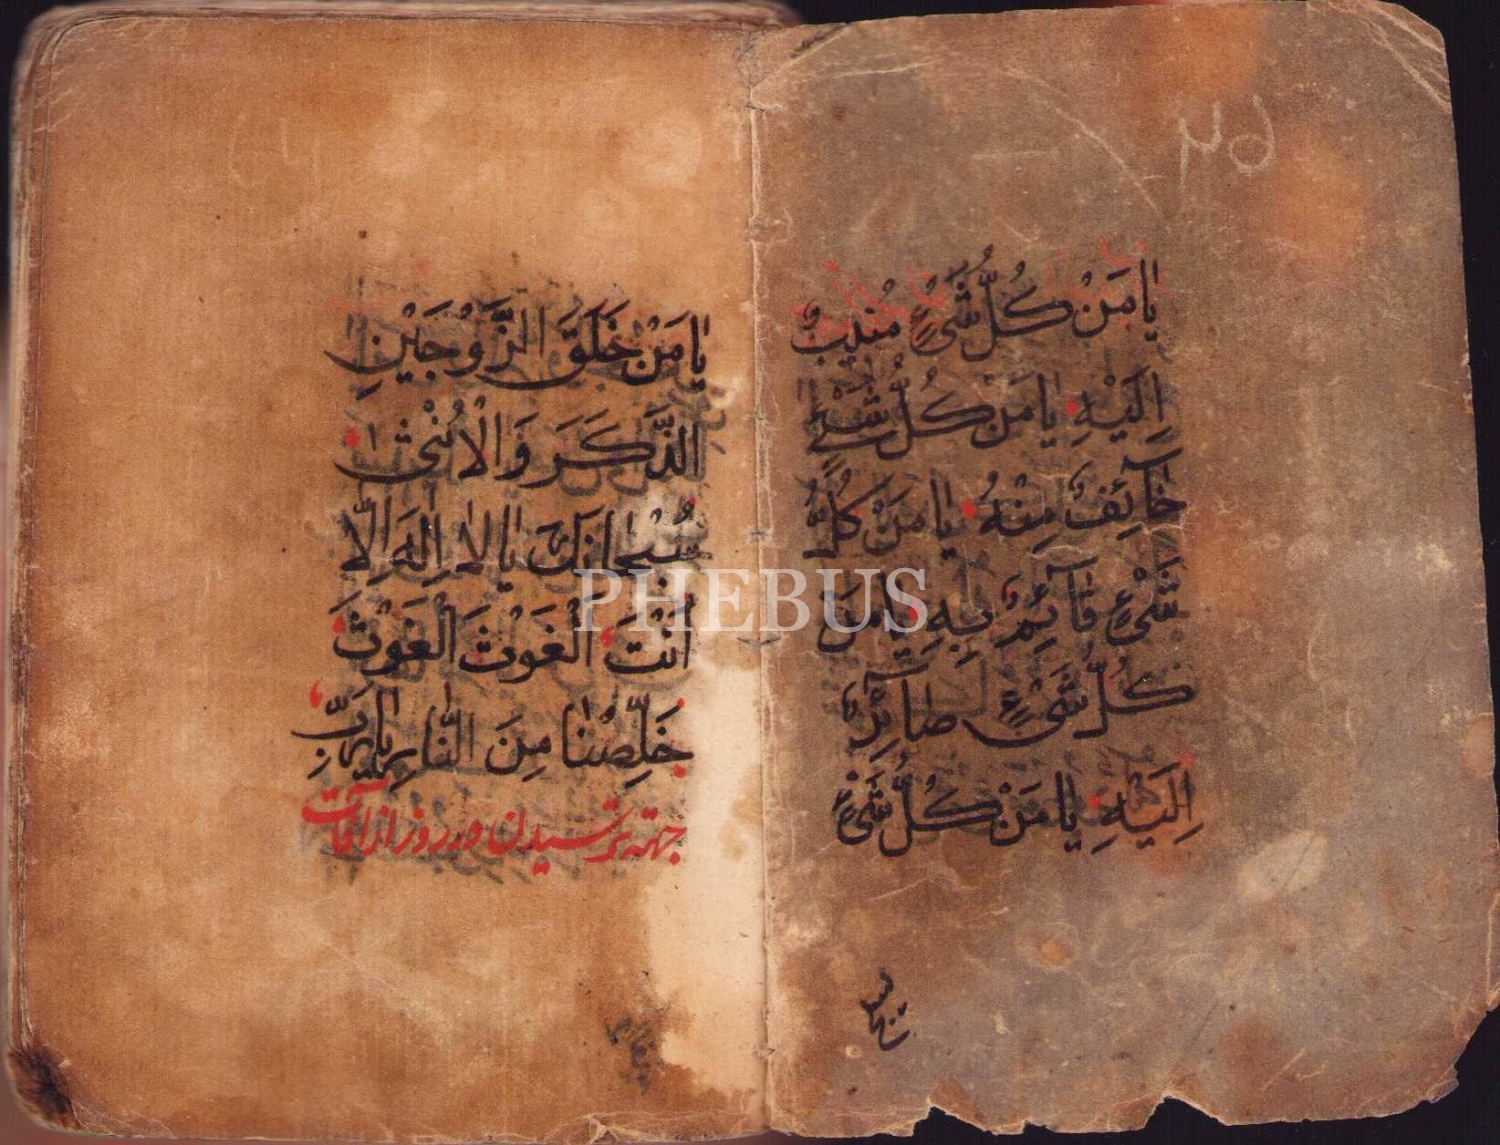 يا مَنْ كُلُّ شَيْءٍ مُنيبٌ
اِلَيْهِ يا مَنْ كُلُّ شَيْءٍ
خآئِفٌ مِنْهُ يا مَنْ كُلُّ
شَيْءٍ قآئِمٌ بِهِ يا مَنْ
كُلُّ شَيْءٍ صآئِرٌ
اِلَيْهِ يا مَنْ كُلُّ شَيْءٍ
يا مَنْ خَلَقَ الزَّوْجَيْنِ
الذَّكَرَ وَالْاُنْثى
سُبْحانَكَ يا لا اِلهَ اِلّا
اَنْتَ الْغَوْثَ الْغَوْثَ
خَلِّصْنا مِنَ النّارِ يا رَبِّ
جهته ترسیدن در روز از آفات
PHEBUS